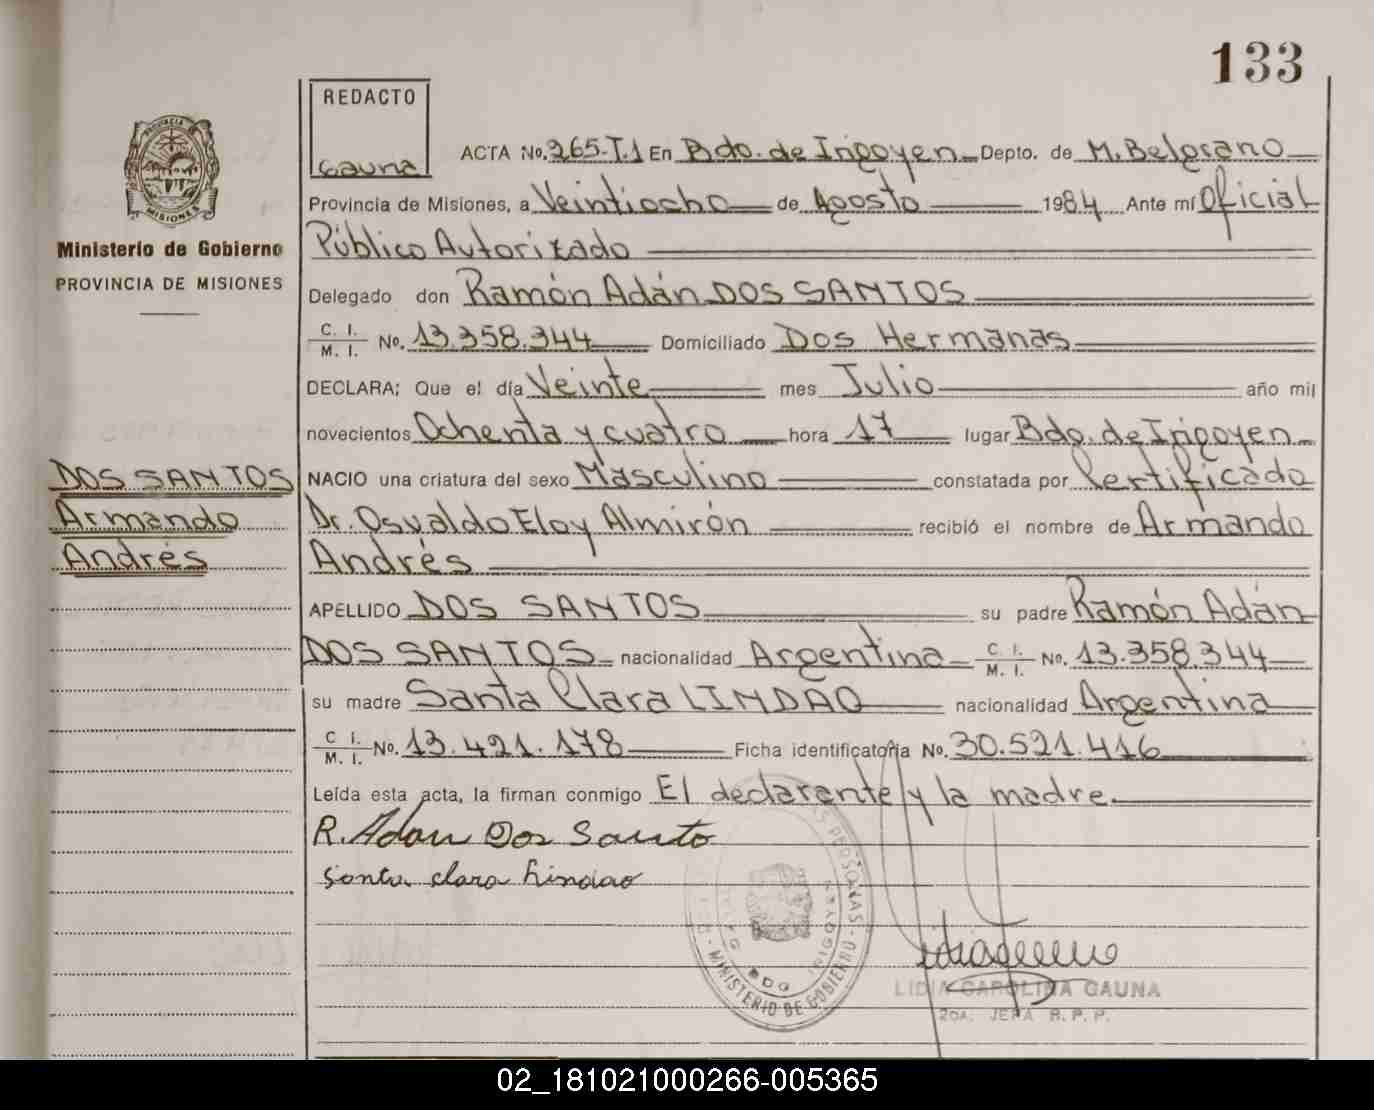 133
REDACTO
Gauna
PROVINCIA
MISIONES
Ministerio de Gobierno
PROVINCIA DE MISIONES
ACTA No. 265-T.1 En Bdo. de Irigoyen Depto. de M. Belgrano
Provincia de Misiones, a Veintiocho de Agosto 1984 Ante mí Oficial
Público Autorizado
Delegado don Ramón Adán DOS SANTOS
C. I.
M. I. No. 13.358.344 Domiciliado Dos Hermanas
DECLARA; Que el día Veinte mes Julio año mil
novecientos Ochenta y cuatro hora 17 lugar Bdo. de Irigoyen
DOS SANTOS
Armando
Andrés
NACIO una criatura del sexo Masculino constatada por Certificado
Dr. Osvaldo Eloy Almirón recibió el nombre de Armando
Andrés
APELLIDO DOS SANTOS su padre Ramón Adán
DOS SANTOS nacionalidad Argentina C. I. M. I. No. 13.358.344
su madre Santa Clara LINDAO nacionalidad Argentina
C. I.
M. I. No. 13.421.178 Ficha identificatoria No. 30.521.416
Leída esta acta, la firman conmigo El declarante y la madre.
R. Adan Dos Santo
santa clara lindao
PERSONAS
MINISTERIO DE GOBIERNO
BDO IRIGOYEN
LIDIA CAROLINA GAUNA
2DA. JEFA R. P. P.
02_181021000266-005365